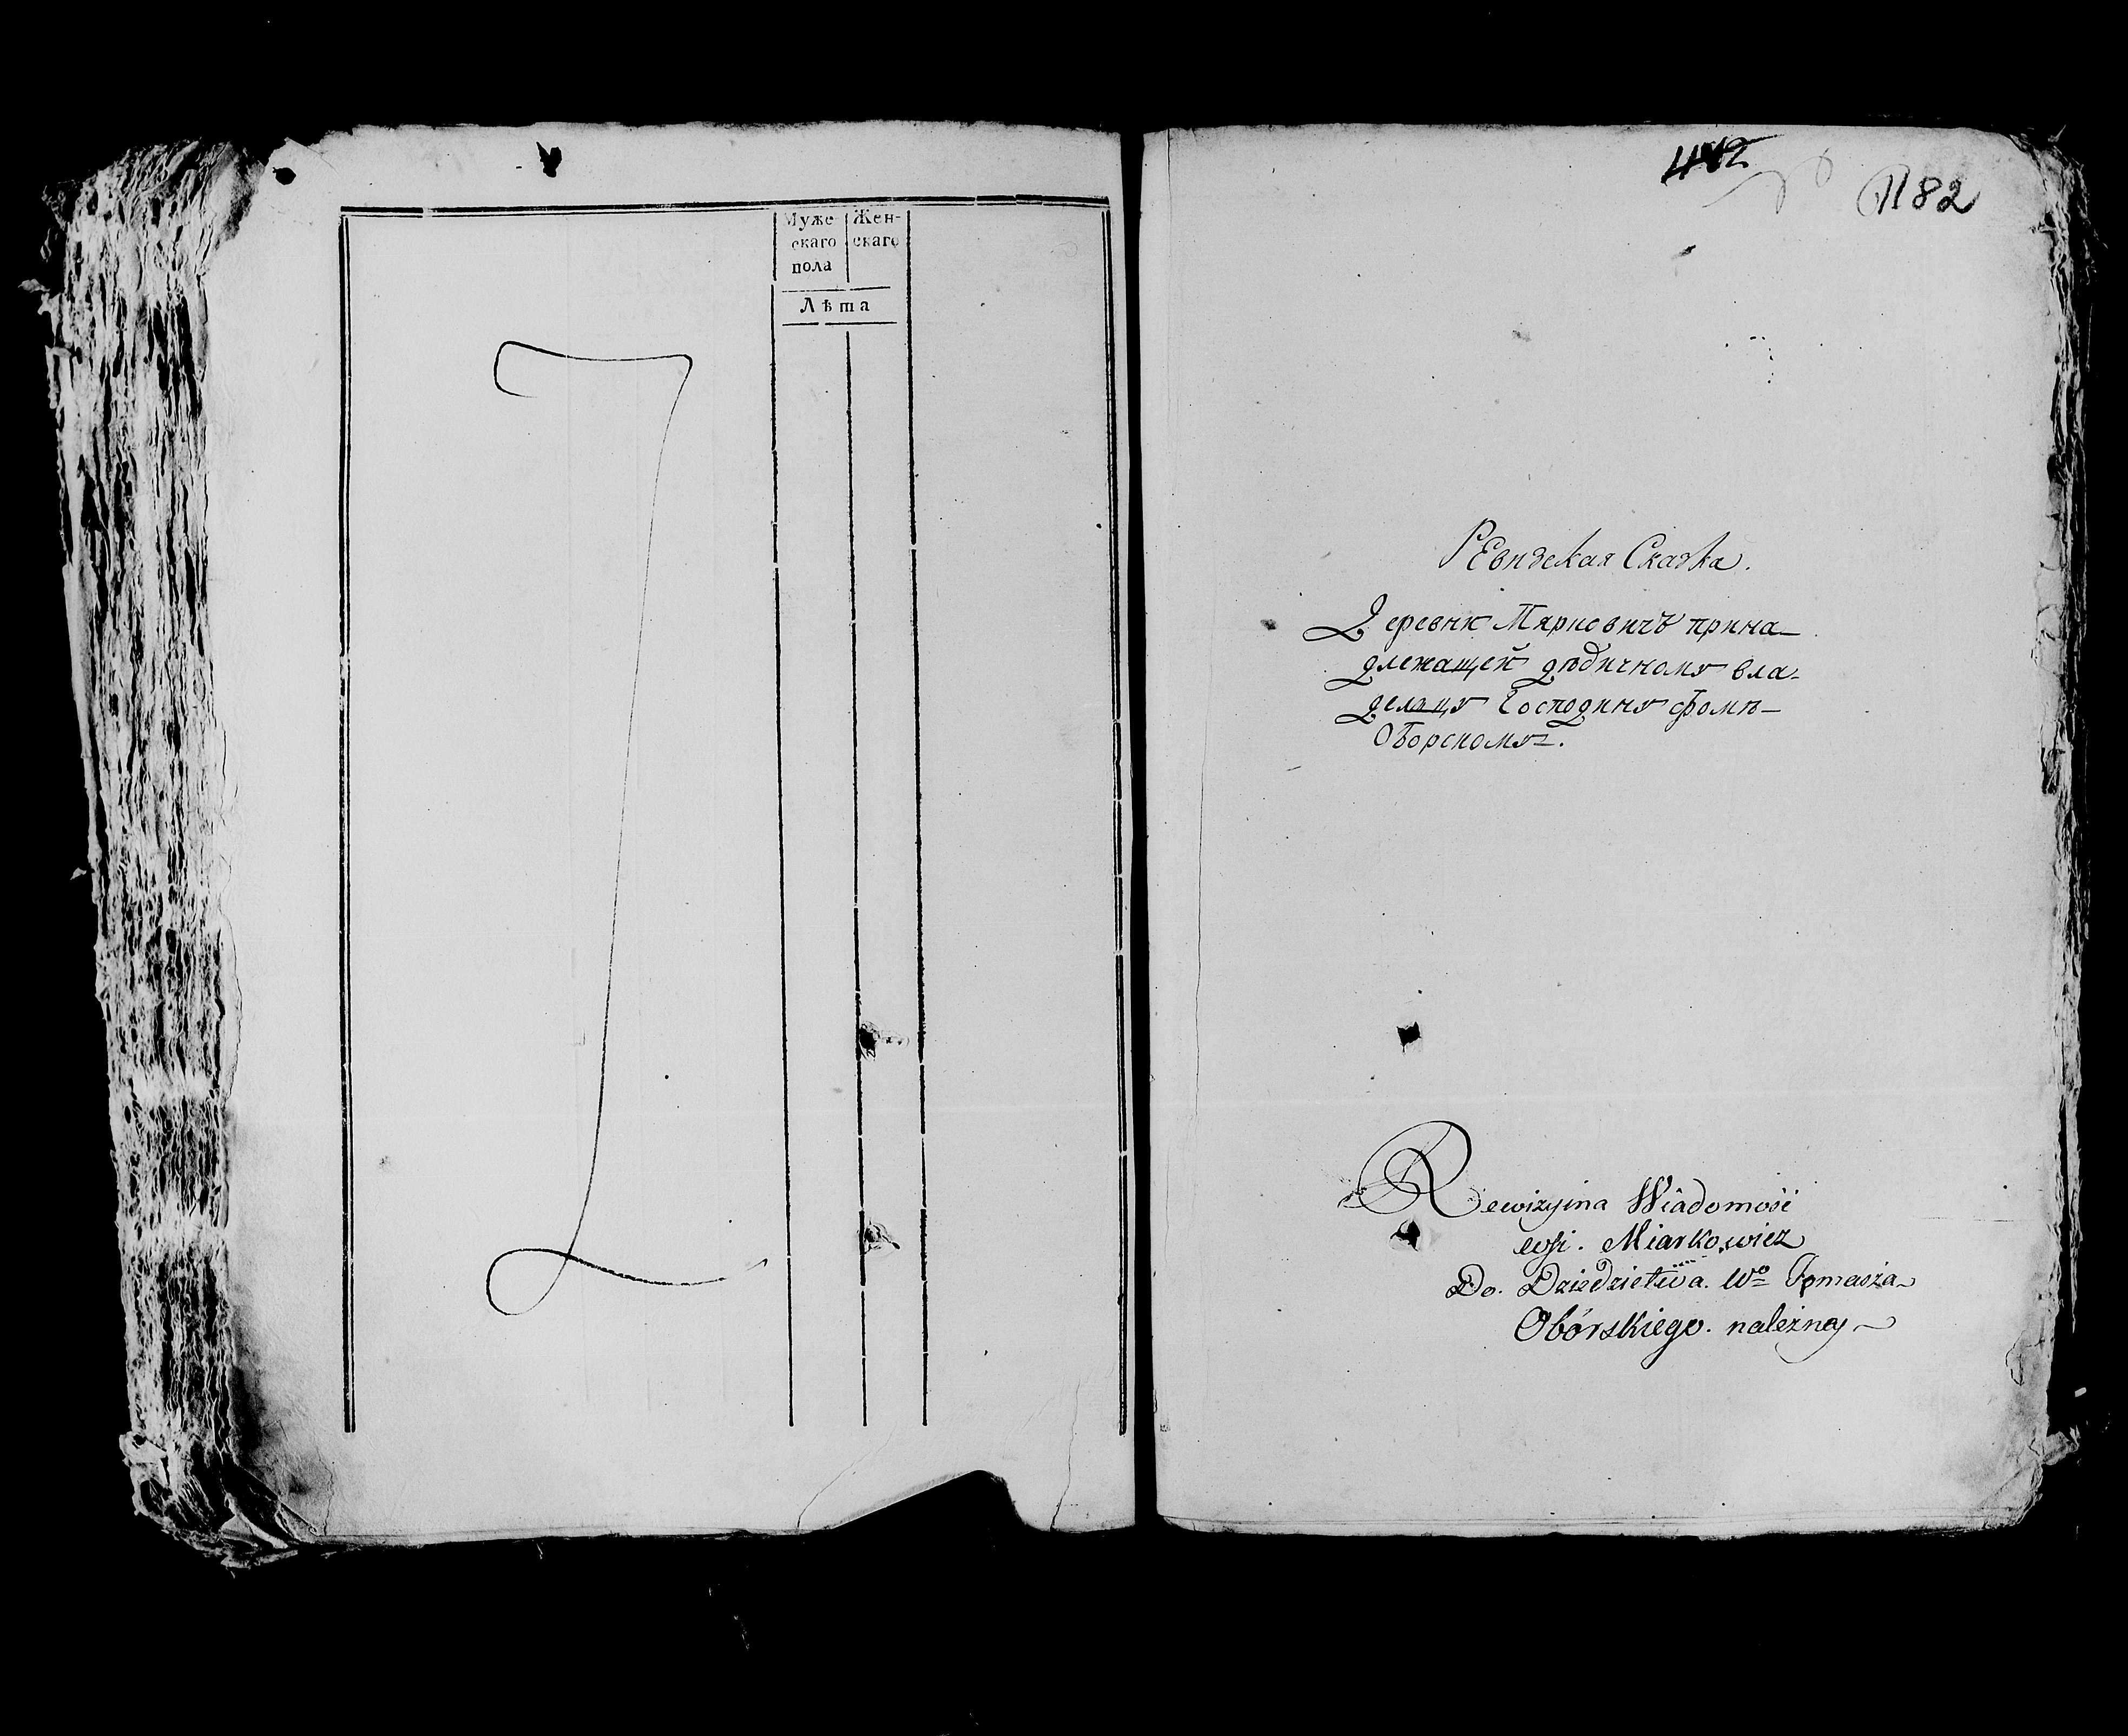 Муже- Жен-
скаго скаго
пола
Лѣта
1182
Ревизская Сказка.
Деревни Мярковичъ прина-
длежащей дѣдичному вла-
делцу Господину Фомѣ
Оборскому.
Rewizyina Wiadomość
wsi. Miarkowicz
Do. Dziedzictwa. Wo Tomasza
Obórskiego. należnaj